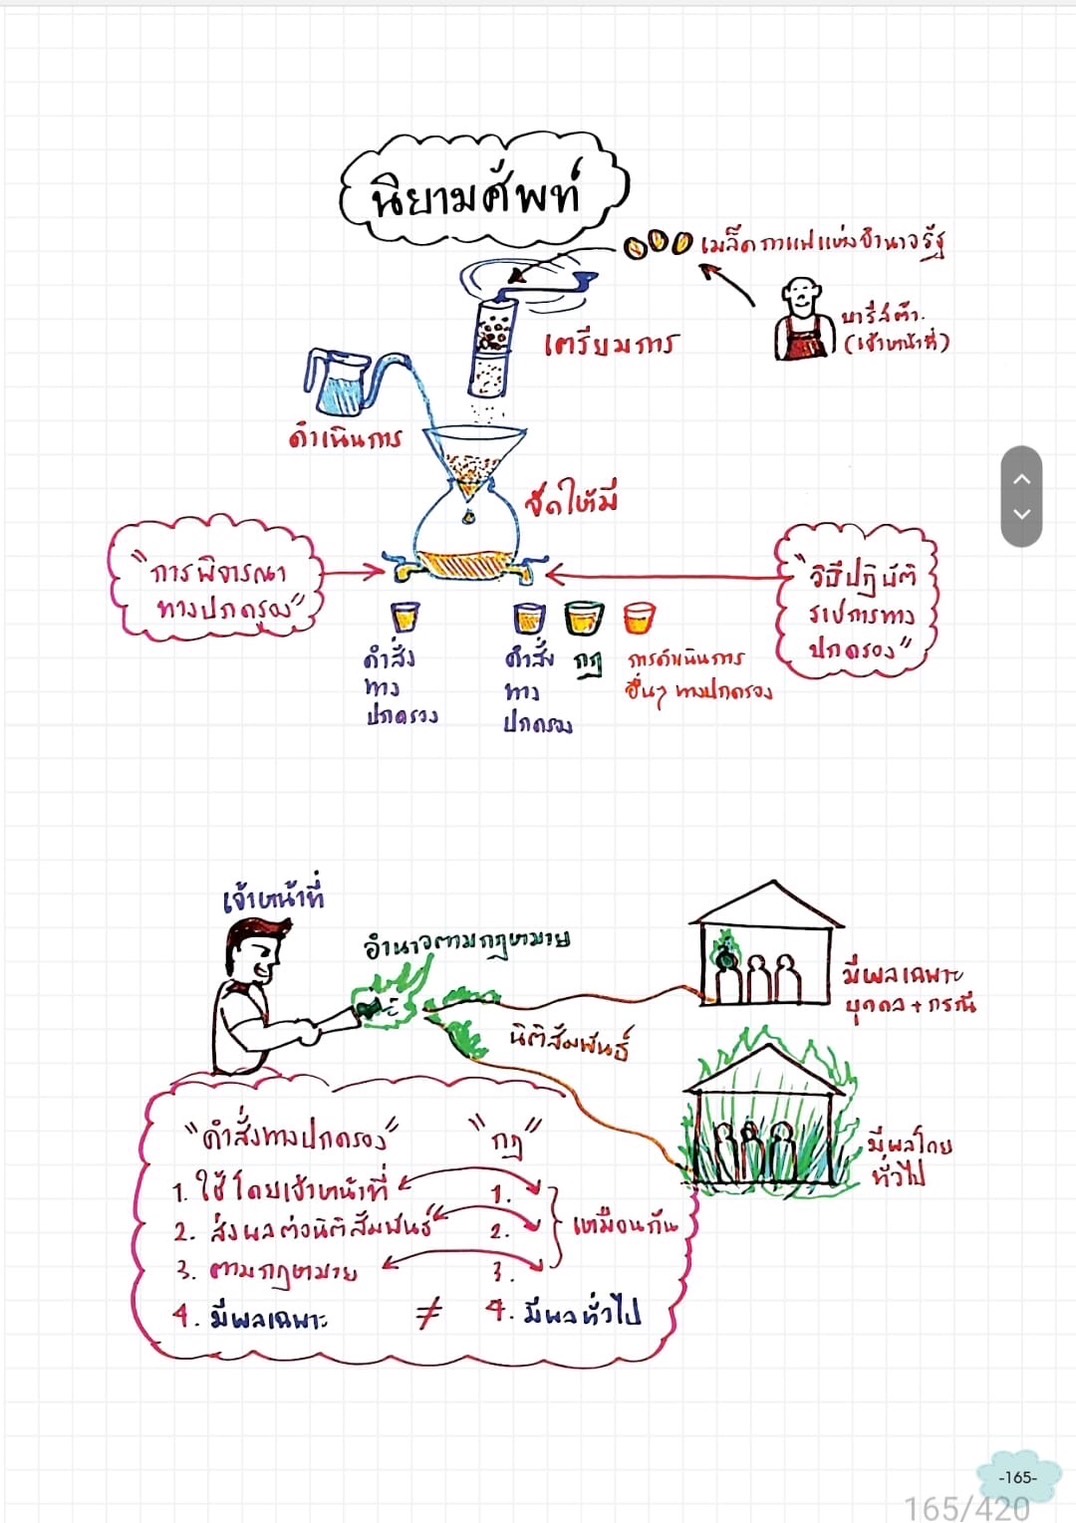 นิยามศัพท์
เมล็ดกาแฟแห่งอำนาจรัฐ
บาริสต้า.
(เจ้าหน้าที่)
เตรียมการ
ดำเนินการ
จัดให้มี
"การพิจารณา
ทางปกครอง"
"วิธีปฏิบัติ
ราชการทาง
ปกครอง"
คำสั่ง
ทาง
ปกครอง
คำสั่ง
ทาง
ปกครอง
กฎ
การดำเนินการ
อื่นๆ ทางปกครอง
เจ้าหน้าที่
อำนาจตามกฎหมาย
มีผลเฉพาะ
บุคคล + กรณี
นิติสัมพันธ์
มีผลโดย
ทั่วไป
"คำสั่งทางปกครอง" "กฎ"
1. ใช้โดยเจ้าหน้าที่ 1.
2. ส่งผลต่อนิติสัมพันธ์ 2. เหมือนกัน
3. ตามกฎหมาย 3.
4. มีผลเฉพาะ ≠ 4. มีผลทั่วไป
-165-
165/420